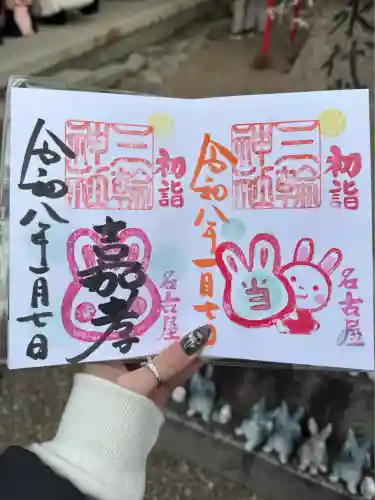 永代
三輪
神社
初詣
令和八年一月七日
名古屋
当
三輪
神社
初詣
令和八年一月七日
嘉孝
名古屋